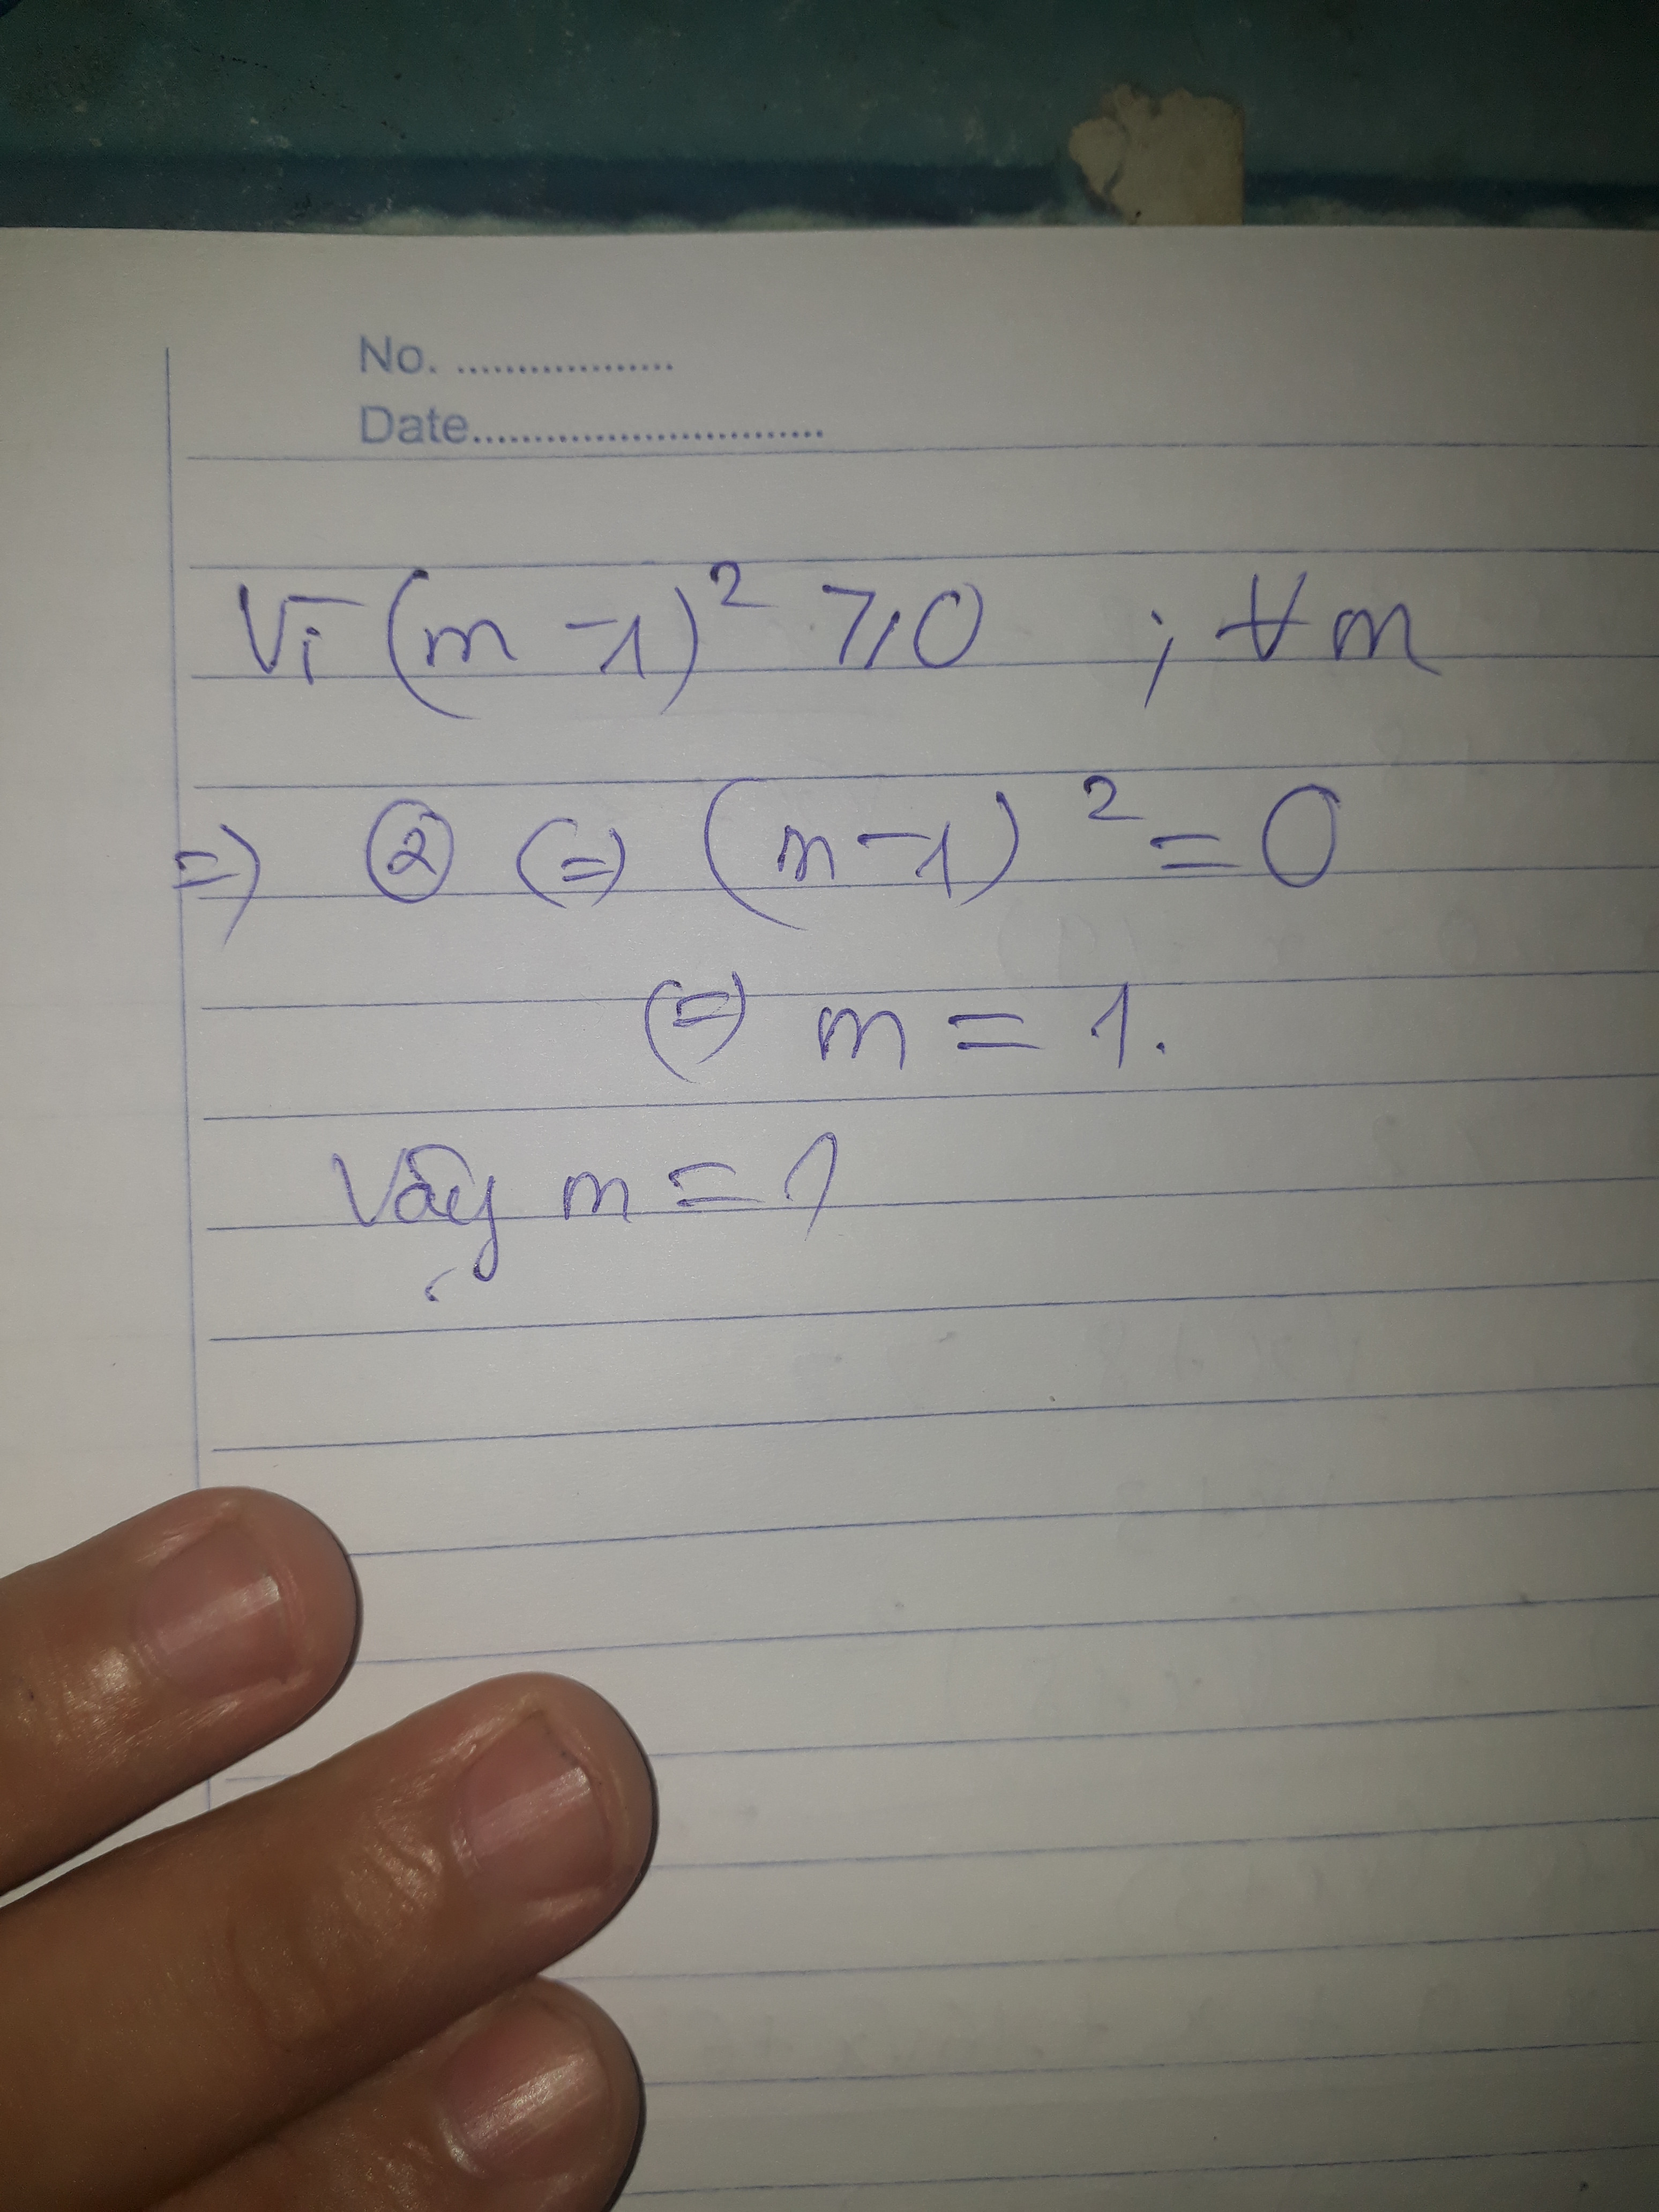 No. ..................
Date.............................
Vì (m - 1)² ≥ 0 ; ∀ m
=> ② <=> (m - 1)² = 0
<=> m = 1.
Vậy m = 1